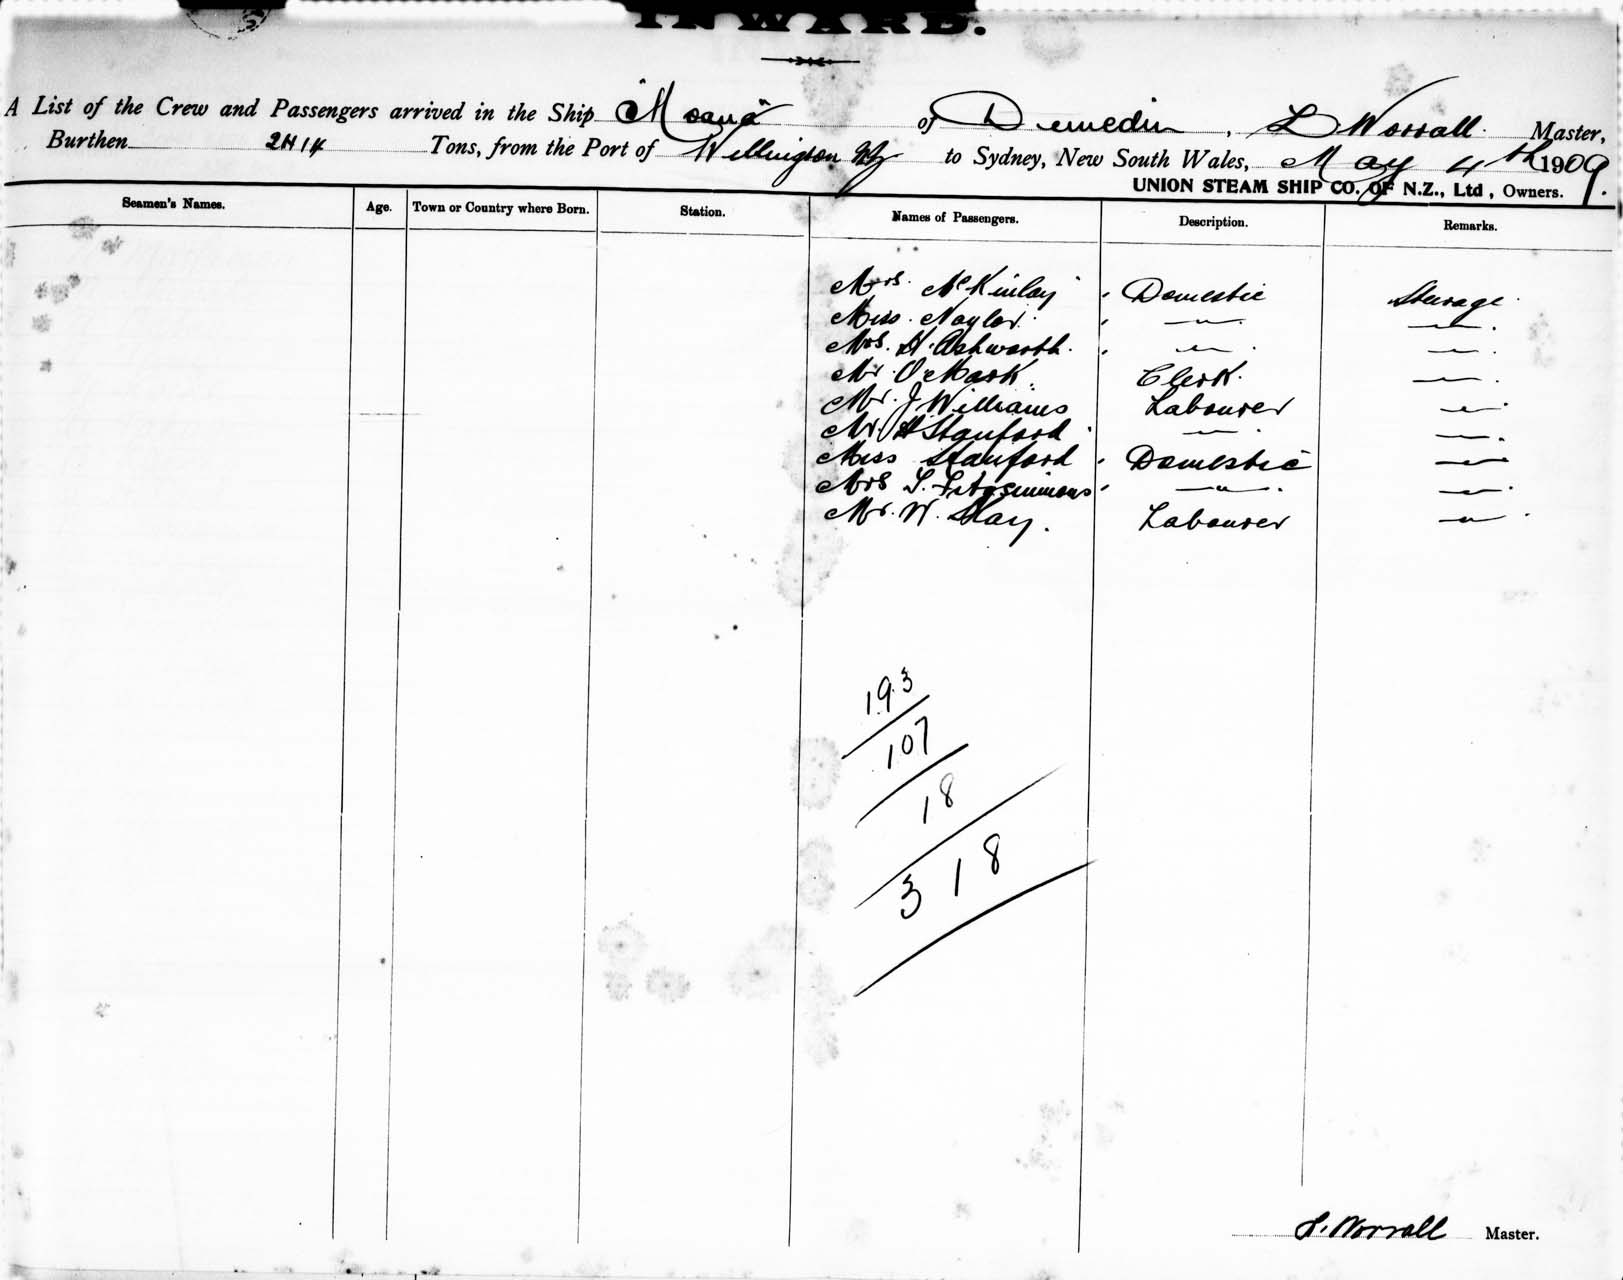 INWARD.
A List of the Crew and Passengers arrived in the Ship "Moana" of Dunedin, L Worrall. Master,
Burthen 2414 Tons, from the Port of Wellington NZ to Sydney, New South Wales, May 4th 1909.
UNION STEAM SHIP CO. OF N.Z., Ltd, Owners.
Seamen's Names. Age. Town or Country where Born. Station. Names of Passengers. Description. Remarks.
Mrs. McKinlay Domestic Steerage.
Miss. Naylor. — " — — " —
Mrs. H. Ashworth. — " — — " —
Mr. O Mark. Clerk. — " —
Mr. J Williams Labourer — " —
Mr. H Stanford — " — — " —
Miss Stanford Domestic — " —
Mrs Fitzsimmons — " — — " —
Mr. W. Labourer — " —
193
107
18
318
L. Worrall Master.